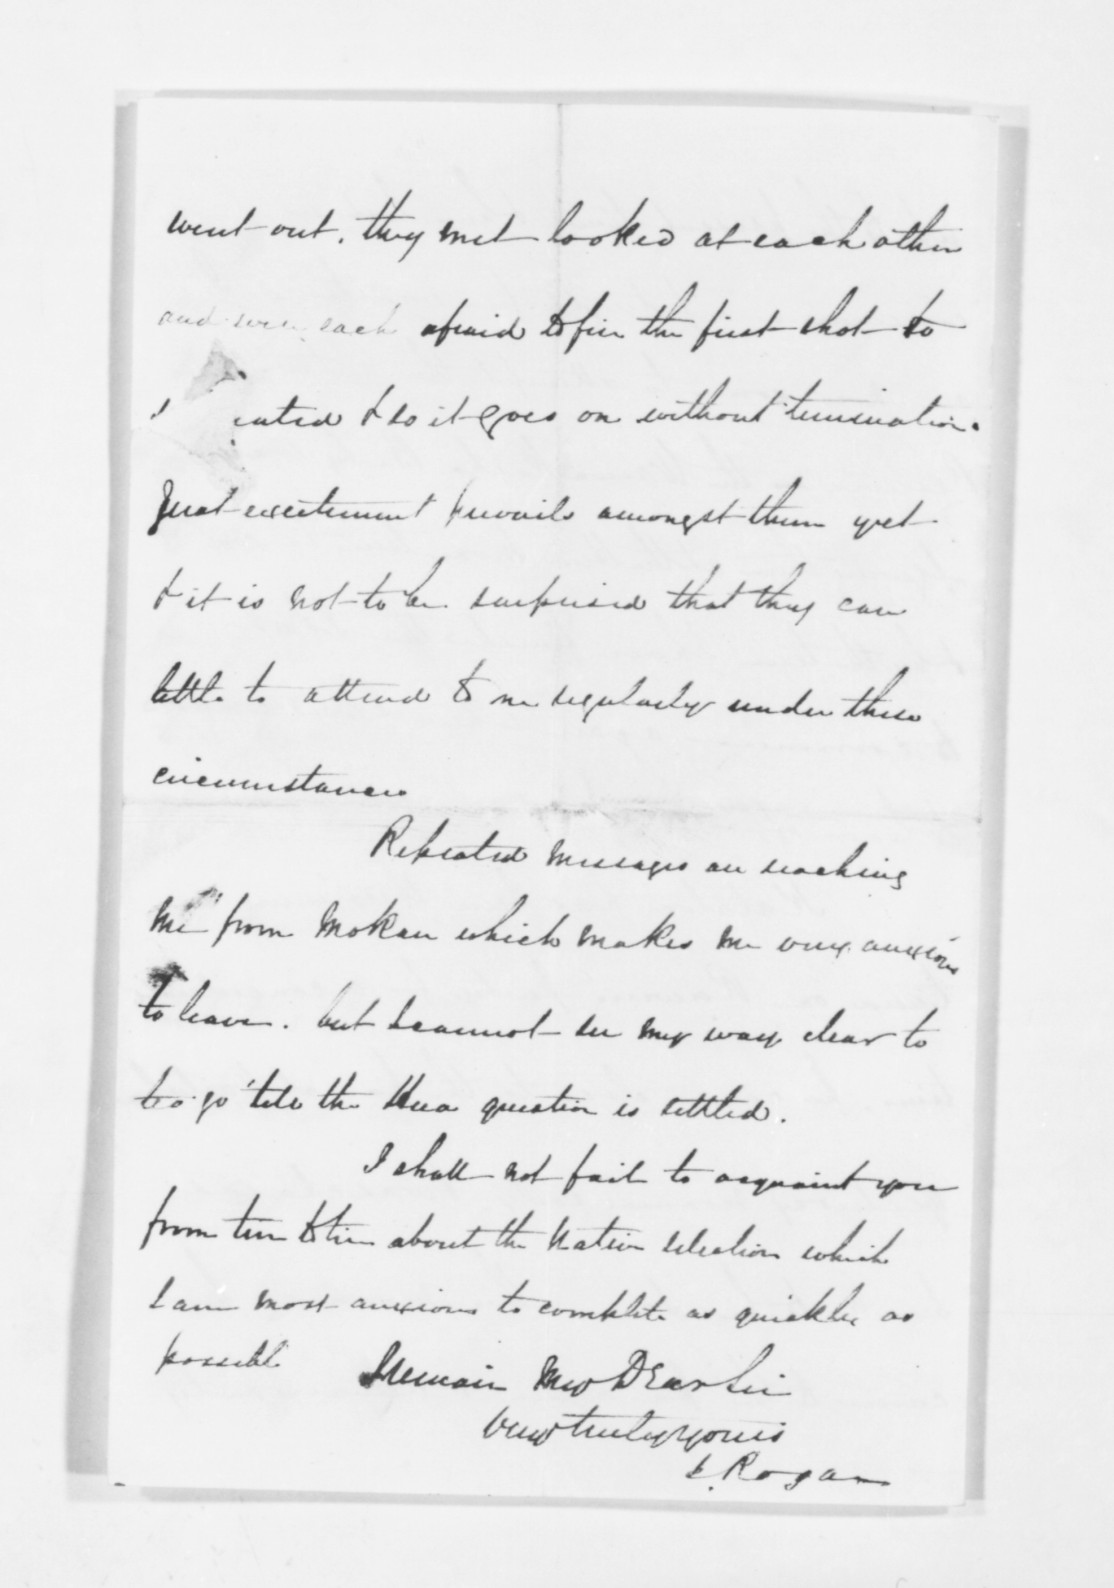 went out. they met looked at each other
and were each afraid to fire the first shot to
& so it goes on without termination.
Great excitement prevails amongst them yet
& it is not to be surprised that they care
little to attend to me regularly under these
circumstances
Repeated messages are reaching
me from Mokau which makes me very anxious
to leave. but I cannot see my way clear to
to go 'till the question is settled.
I shall not fail to acquaint you
from time to time about the Native selection which
I am most anxious to complete as quickly as
possible I remain My DEar Sir
Very truly yours
J. Rogan